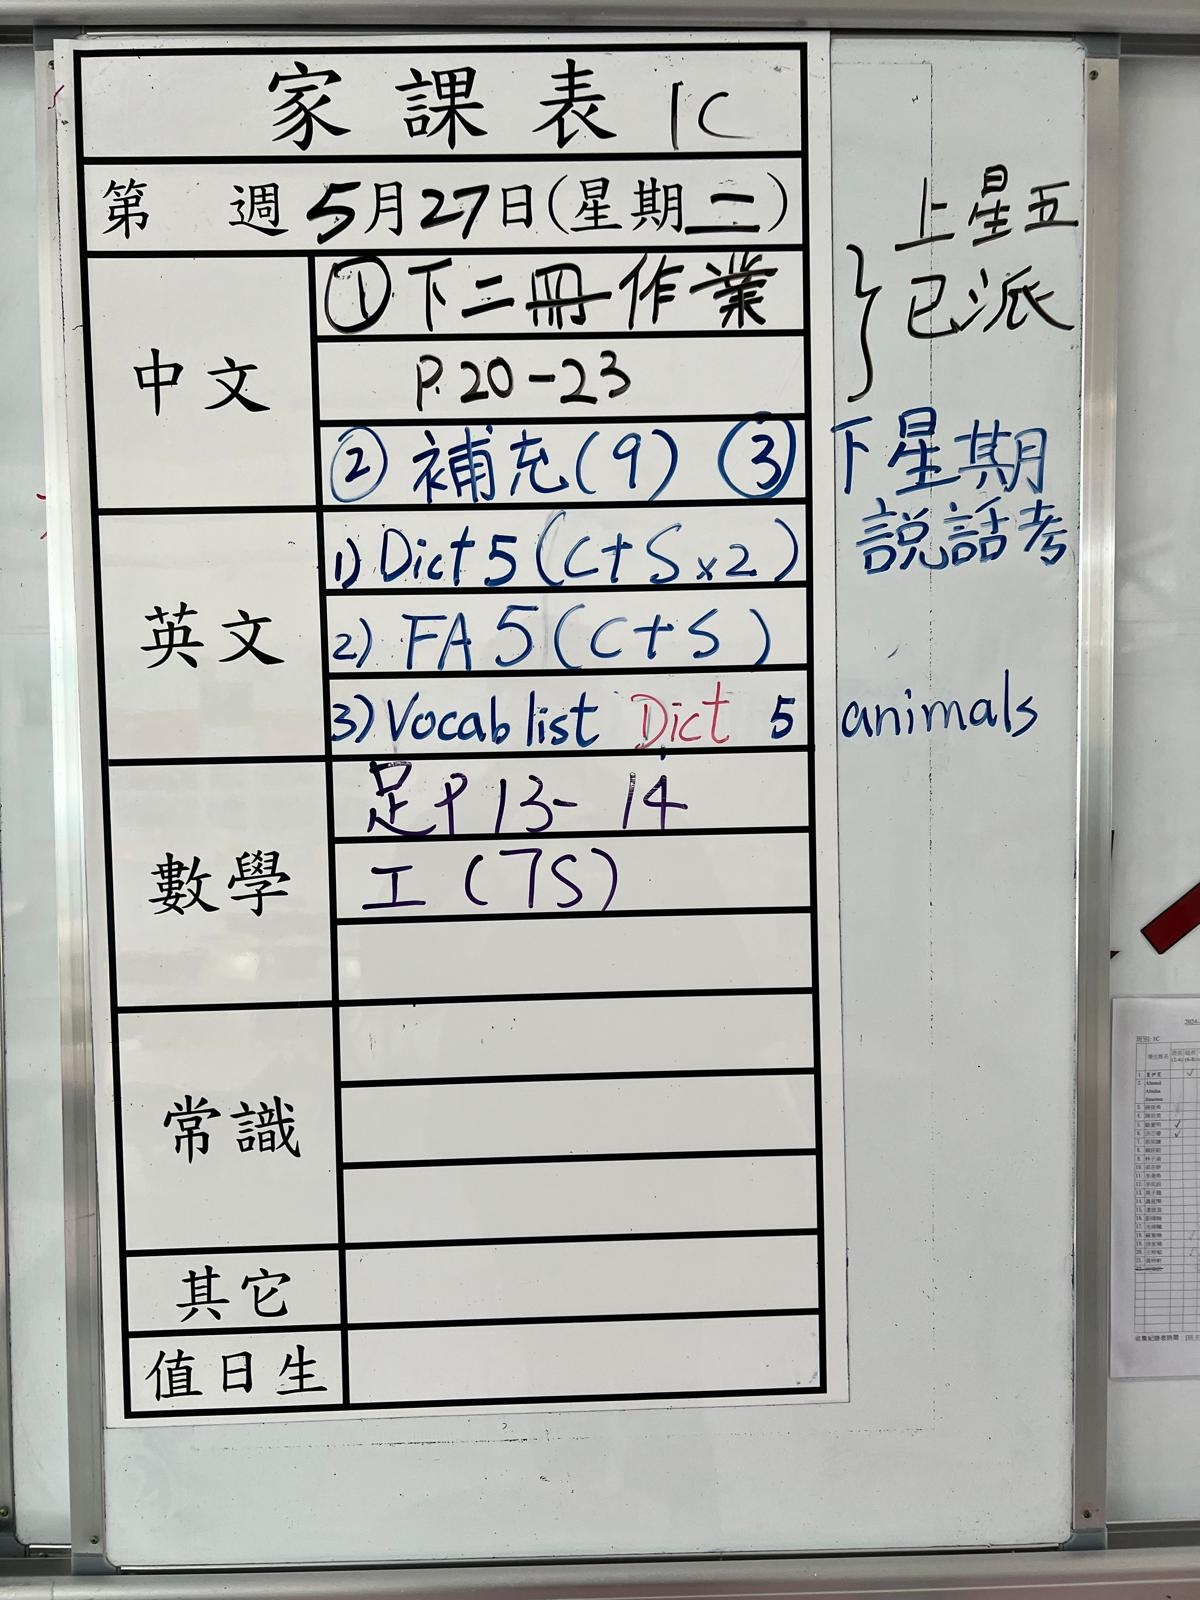 家課表 1C
第 週 5月27日(星期二)
中文
① 下二冊作業
P.20-23
上星五
已派
② 補充(9) ③ 下星期
説話考
英文
1) Dict 5 (C+S x2)
2) FA 5 (C+S)
3) Vocab list Dict 5 animals
數學
足P 13-14
工(7S)
常識
其它
值日生
班別: 1C